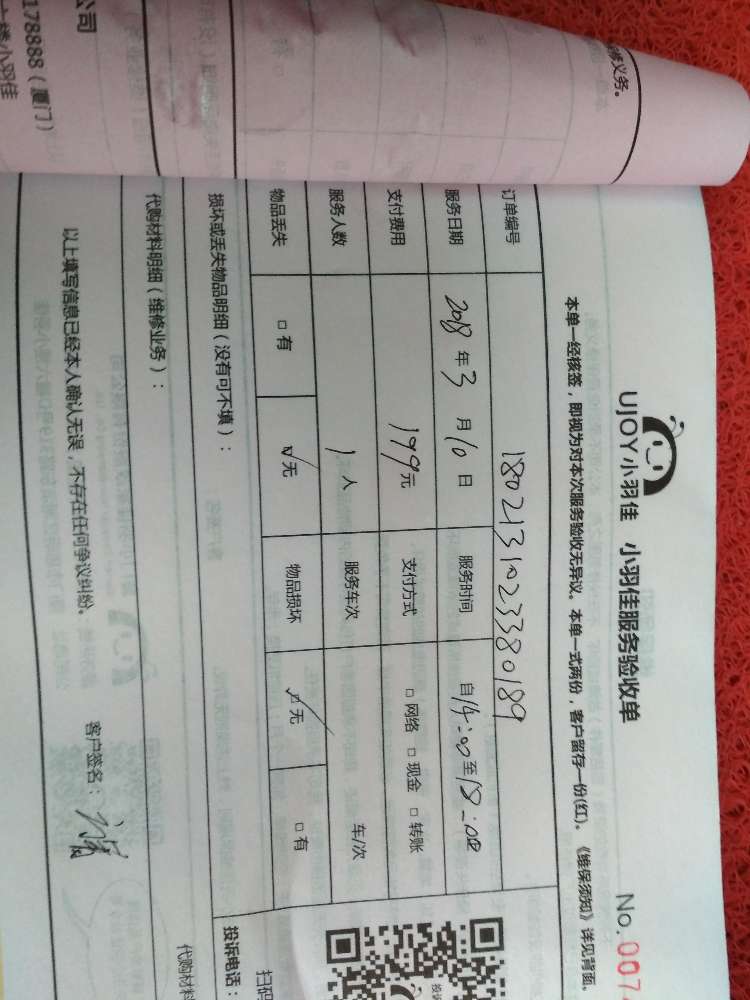 UJOY小羽佳 小羽佳服务验收单 No. 007
本单一经核签，即视为对本次服务验收无异议。本单一式两份，客户留存一份(红)。《维保须知》详见背面。
订单编号 1802131023380189
服务日期 2018 年 3 月 10 日 服务时间 自14:00至18:00
支付费用 199元 支付方式 □ 网络 □ 现金 □ 转账
服务人数 1 人 服务车次 车/次
物品丢失 □ 有 ☑ 无 物品损坏 ☑ 无 □ 有
损坏或丢失物品明细（没有可不填）：
投诉电话：
扫码
代购材料明细（维修业务）：
代购材料
以上填写信息已经本人确认无误，不存在任何争议纠纷。
客户签名：
修义务。
公司
178888（厦门）
楼小羽佳